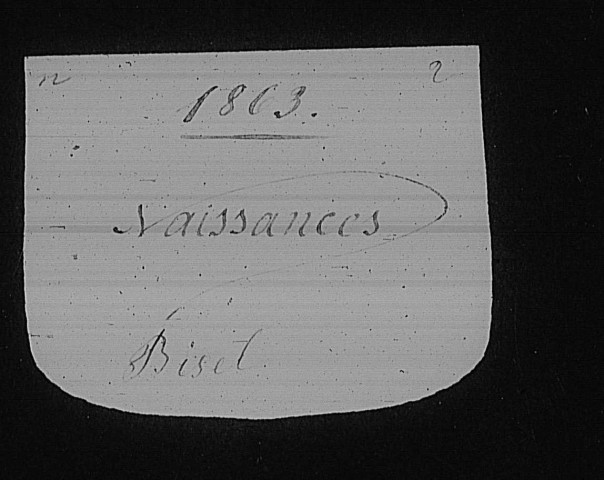 n 2
1863.
Naissances
Bisel